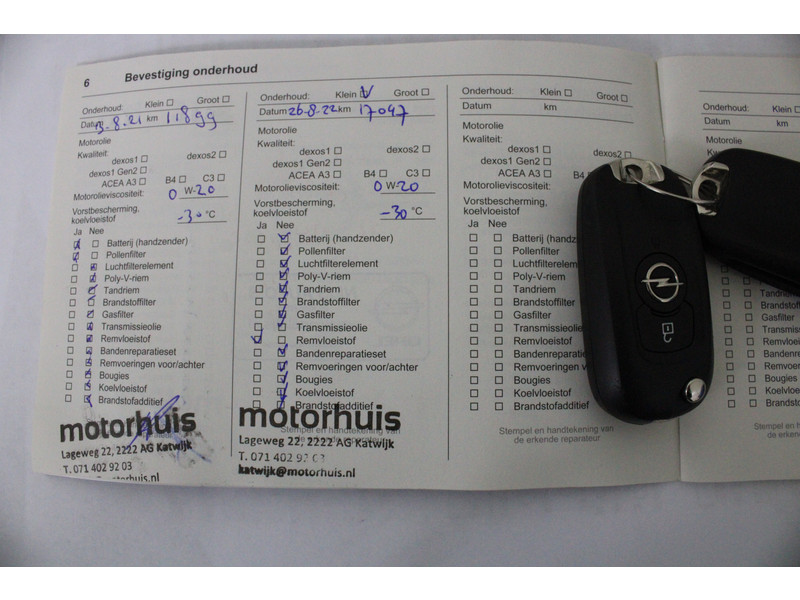 6 Bevestiging onderhoud
Onderhoud: Klein Groot
Datum 3-8.21 km 11899
Motorolie
Kwaliteit:
dexos1 dexos2
dexos1 Gen2
ACEA A3 B4 C3
Motorolieviscositeit: 0 W-20
Vorstbescherming,
koelvloeistof -30 °C
Ja Nee
Batterij (handzender)
Pollenfilter
Luchtfilterelement
Poly-V-riem
Tandriem
Brandstoffilter
Gasfilter
Transmissieolie
Remvloeistof
Bandenreparatieset
Remvoeringen voor/achter
Bougies
Koelvloeistof
Brandstofadditief
motorhuis
Lageweg 22, 2222 AG Katwijk
T. 071 402 92 03
Onderhoud: Klein Groot
Datum 26-8-22 km 17047
Motorolie
Kwaliteit:
dexos1 dexos2
dexos1 Gen2
ACEA A3 B4 C3
Motorolieviscositeit: 0 W-20
Vorstbescherming,
koelvloeistof -30 °C
Ja Nee
Batterij (handzender)
Pollenfilter
Luchtfilterelement
Poly-V-riem
Tandriem
Brandstoffilter
Gasfilter
Transmissieolie
Remvloeistof
Bandenreparatieset
Remvoeringen voor/achter
Bougies
Koelvloeistof
Brandstofadditief
motorhuis
Lageweg 22, 2222 AG Katwijk
T. 071 402 92 03
katwijk@motorhuis.nl
Onderhoud: Klein Groot
Datum km
Motorolie
Kwaliteit:
dexos1 dexos2
dexos1 Gen2
ACEA A3
Motorolieviscositeit:
Vorstbescherming,
koelvloeistof
Ja Nee
Batterij (handzender)
Pollenfilter
Luchtfilterelement
Poly-V-riem
Tandriem
Brandstoffilter
Gasfilter
Transmissieolie
Remvloeistof
Bandenreparatieset
Remvoeringen
Bougies
Koelvloeistof
Brandstofadditief
Stempel en handtekening van
de erkende reparateur
Onderhoud: Klein
Datum km
Motorolie